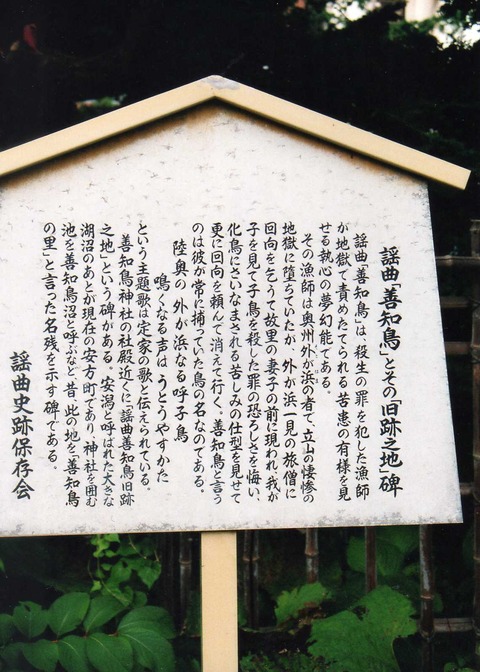 謡曲「善知鳥」とその「旧跡之地」碑
謡曲「善知鳥」は、殺生の罪を犯した漁師
が地獄で責めたてられる苦患の有様を見
せる執心の夢幻能である。
その漁師は奥州外が浜の者で、立山の悽惨の
地獄に堕ちていたが、外が浜一見の旅僧に
回向を乞うて故里の妻子の前に現われ、我が
子を見て子鳥を殺した罪の恐ろしさを悔い、
化鳥にさいなまされる苦しみの仕型を見せて
更に回向を頼んで消えて行く。善知鳥と言う
のは彼が常に捕っていた鳥の名なのである。
陸奥の 外が浜なる呼子鳥
鳴くなる声は うとうやすかた
という主題歌は定家の歌と伝えられている。
善知鳥神社の社殿近くに「謡曲善知鳥旧跡
之地」という碑がある。安潟と呼ばれた大きな
湖沼のあとが現在の安方町であり、神社を囲む
池を善知鳥沼と呼ぶなど、昔、此の地を「善知鳥
の里」と言った名残を示す碑である。
謡曲史跡保存会